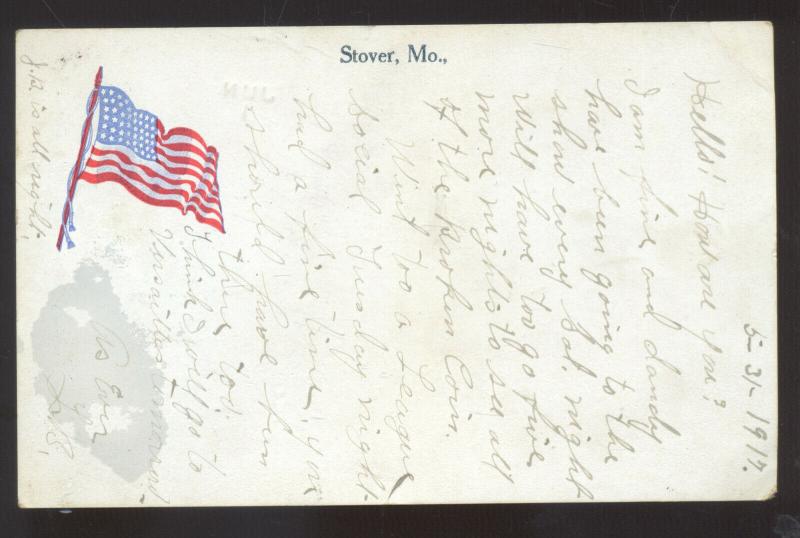 Stover, Mo.,
5-31-1917.
Hello! How are you?
I am fine and dandy
have been going to the
show every Sat. night
will have too go five
more nights to see all
of the Broken Coin.
Wint too a League
social Tuesday night
had a fine time, you
should have been
there too.
Think I will go to
Versailles
As Ever
J.R. is all right.
JUN